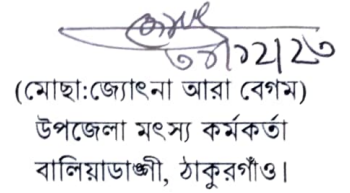 ৩১/১২/২৩
(মোছা:জ্যোৎনা আরা বেগম)
উপজেলা মৎস্য কর্মকর্তা
বালিয়াডাঙ্গী, ঠাকুরগাঁও।